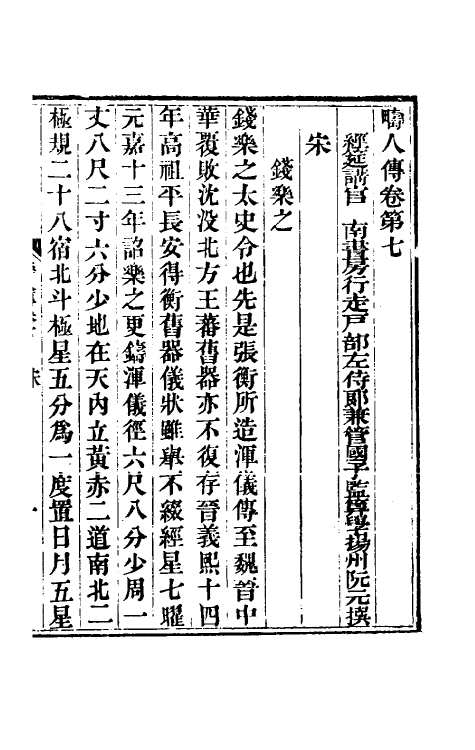 疇人傳卷第七
經筵講官 南書房行走戸部左侍郎兼管國子監算學揚州阮元撰
宋
錢樂之
錢樂之太史令也先是張衡所造渾儀傳至魏晉中
華覆敗沈没北方王蕃舊器亦不復存晉義熙十四
年高祖平長安得衡舊器儀狀雖舉不綴經星七曜
元嘉十三年詔樂之更鑄渾儀徑六尺八分少周一
丈八尺二寸六分少地在天內立黃赤二道南北二
極規二十八宿北斗極星五分爲一度置日月五星
宋
一